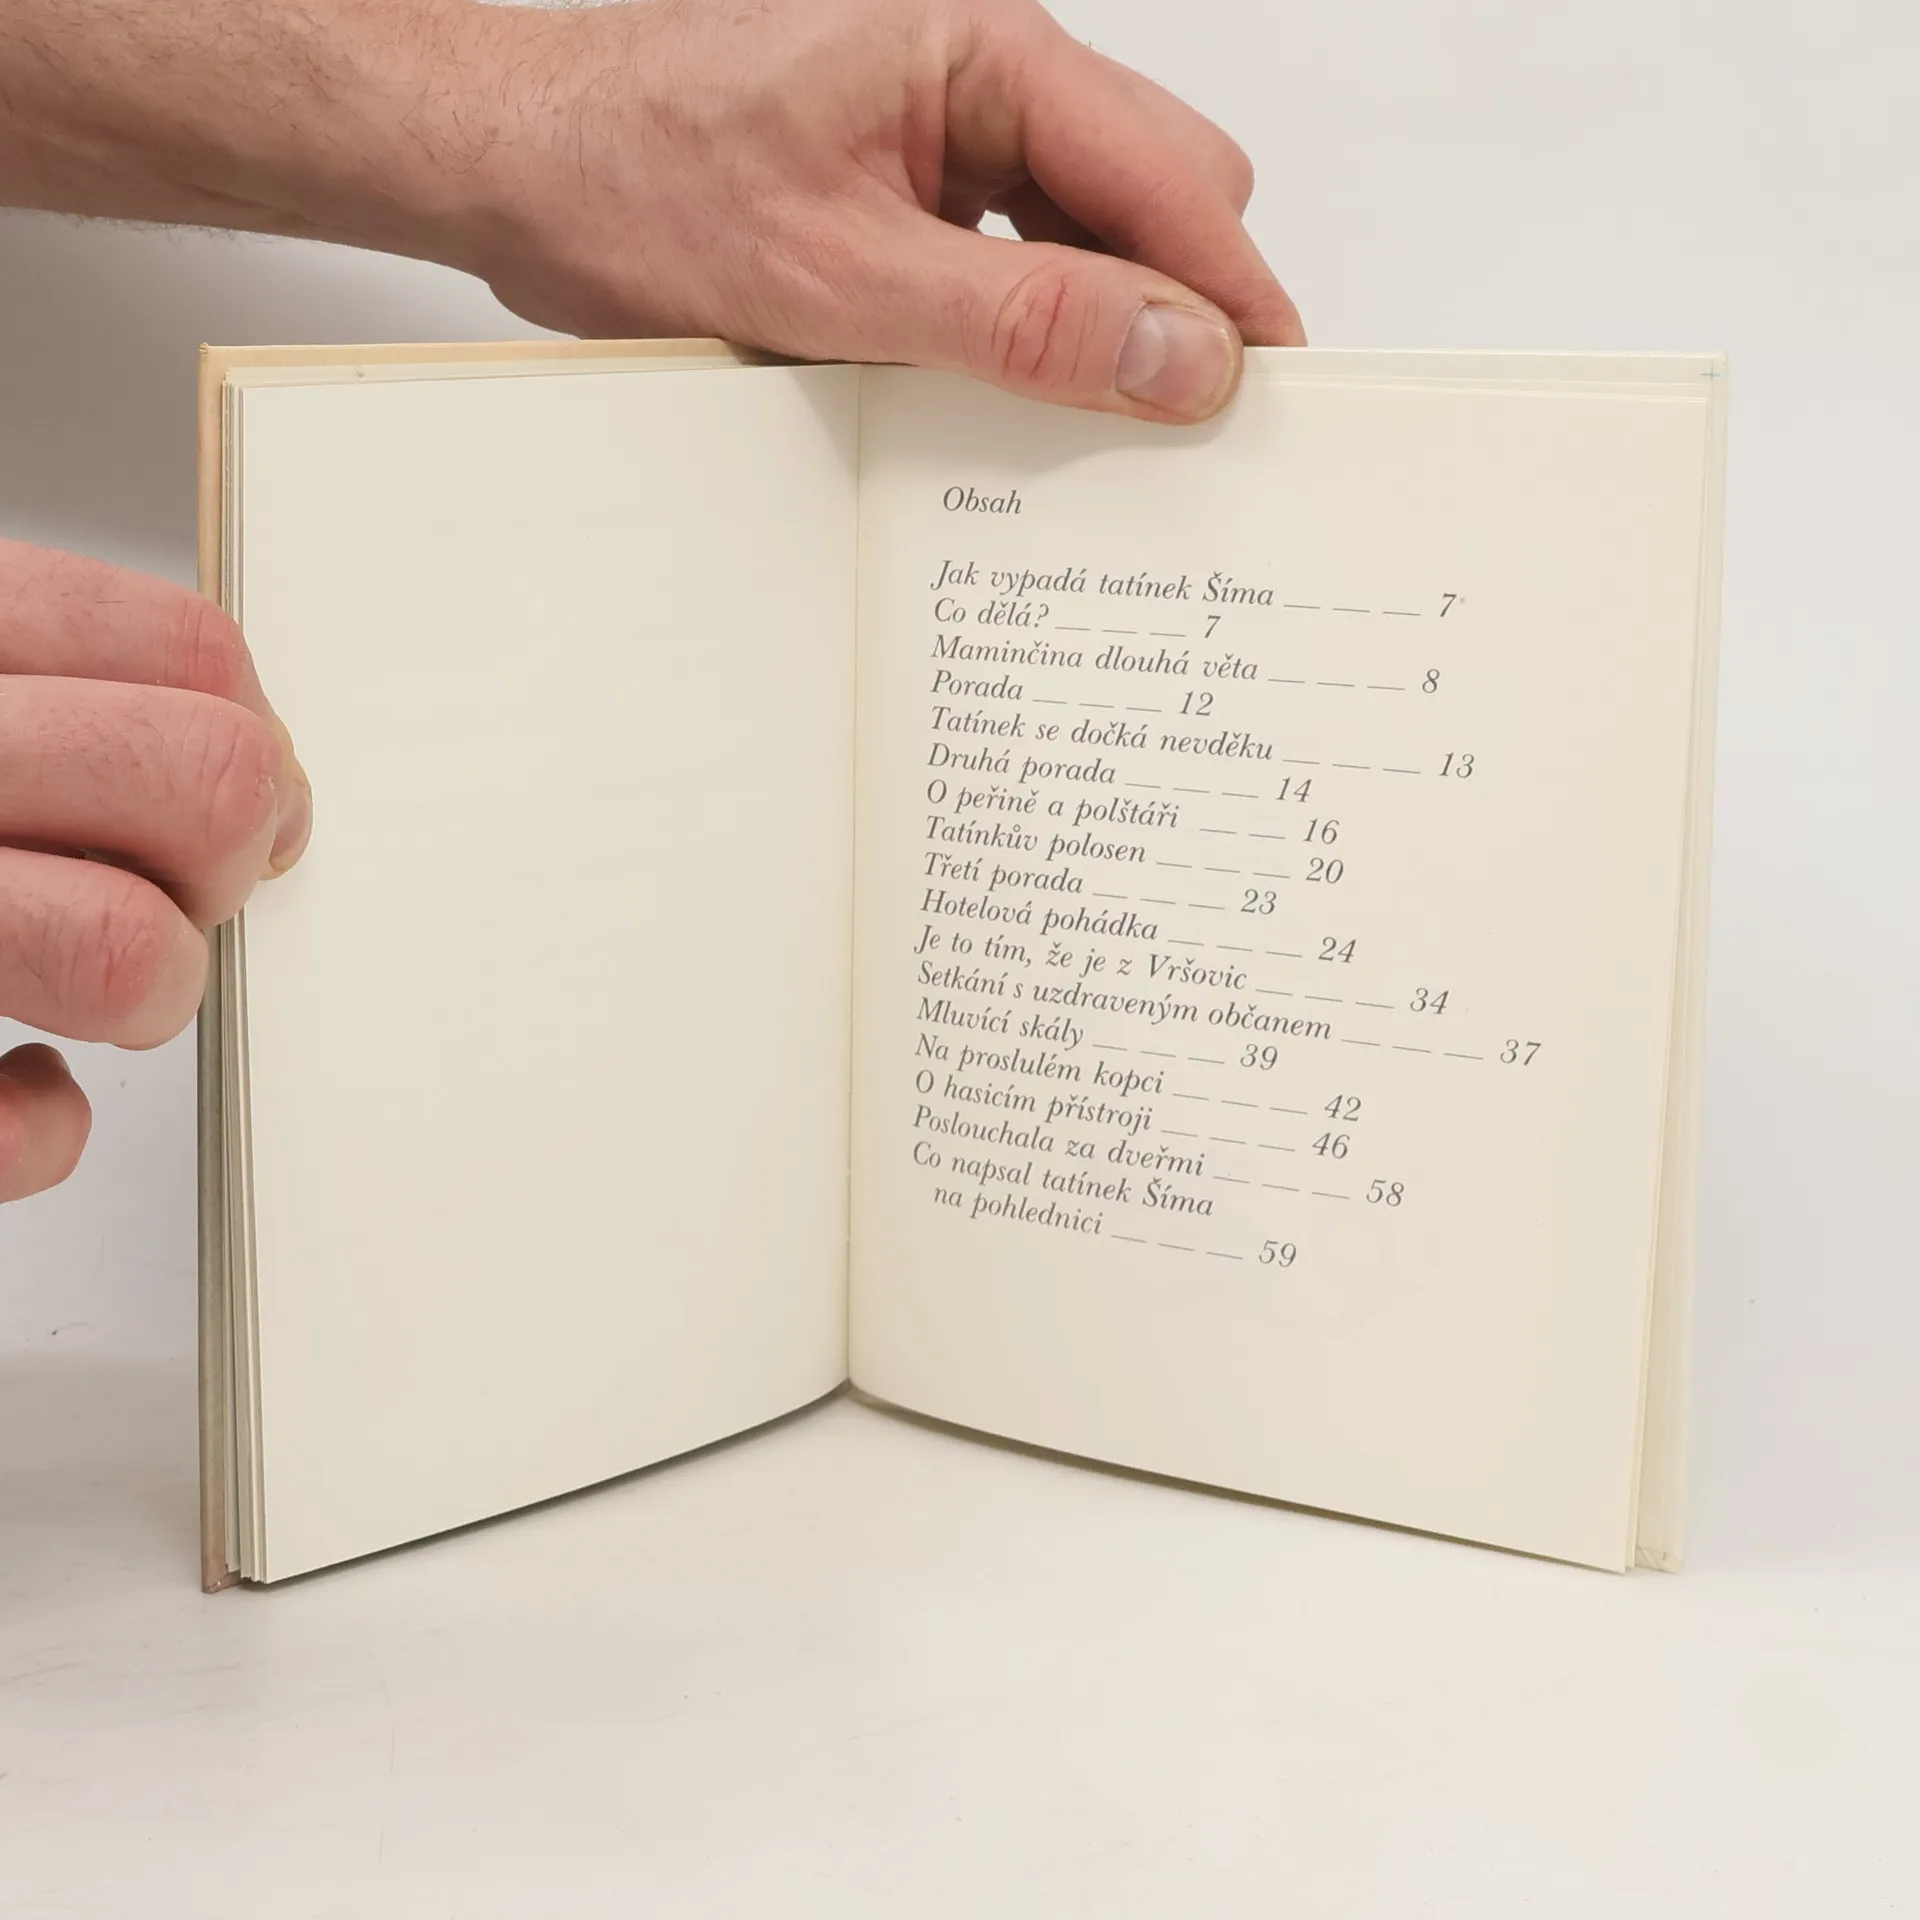 Obsah
Jak vypadá tatínek Šíma — — — 7
Co dělá? — — — 7
Maminčina dlouhá věta — — — 8
Porada — — — 12
Tatínek se dočká nevděku — — — 13
Druhá porada — — — 14
O peřině a polštáři — — 16
Tatínkův polosen — — — 20
Třetí porada — — — 23
Hotelová pohádka — — — 24
Je to tím, že je z Vršovic — — — 34
Setkání s uzdraveným občanem — — — 37
Mluvící skály — — — 39
Na proslulém kopci — — — 42
O hasicím přístroji — — — 46
Poslouchala za dveřmi — — — 58
Co napsal tatínek Šíma
na pohlednici — — — 59